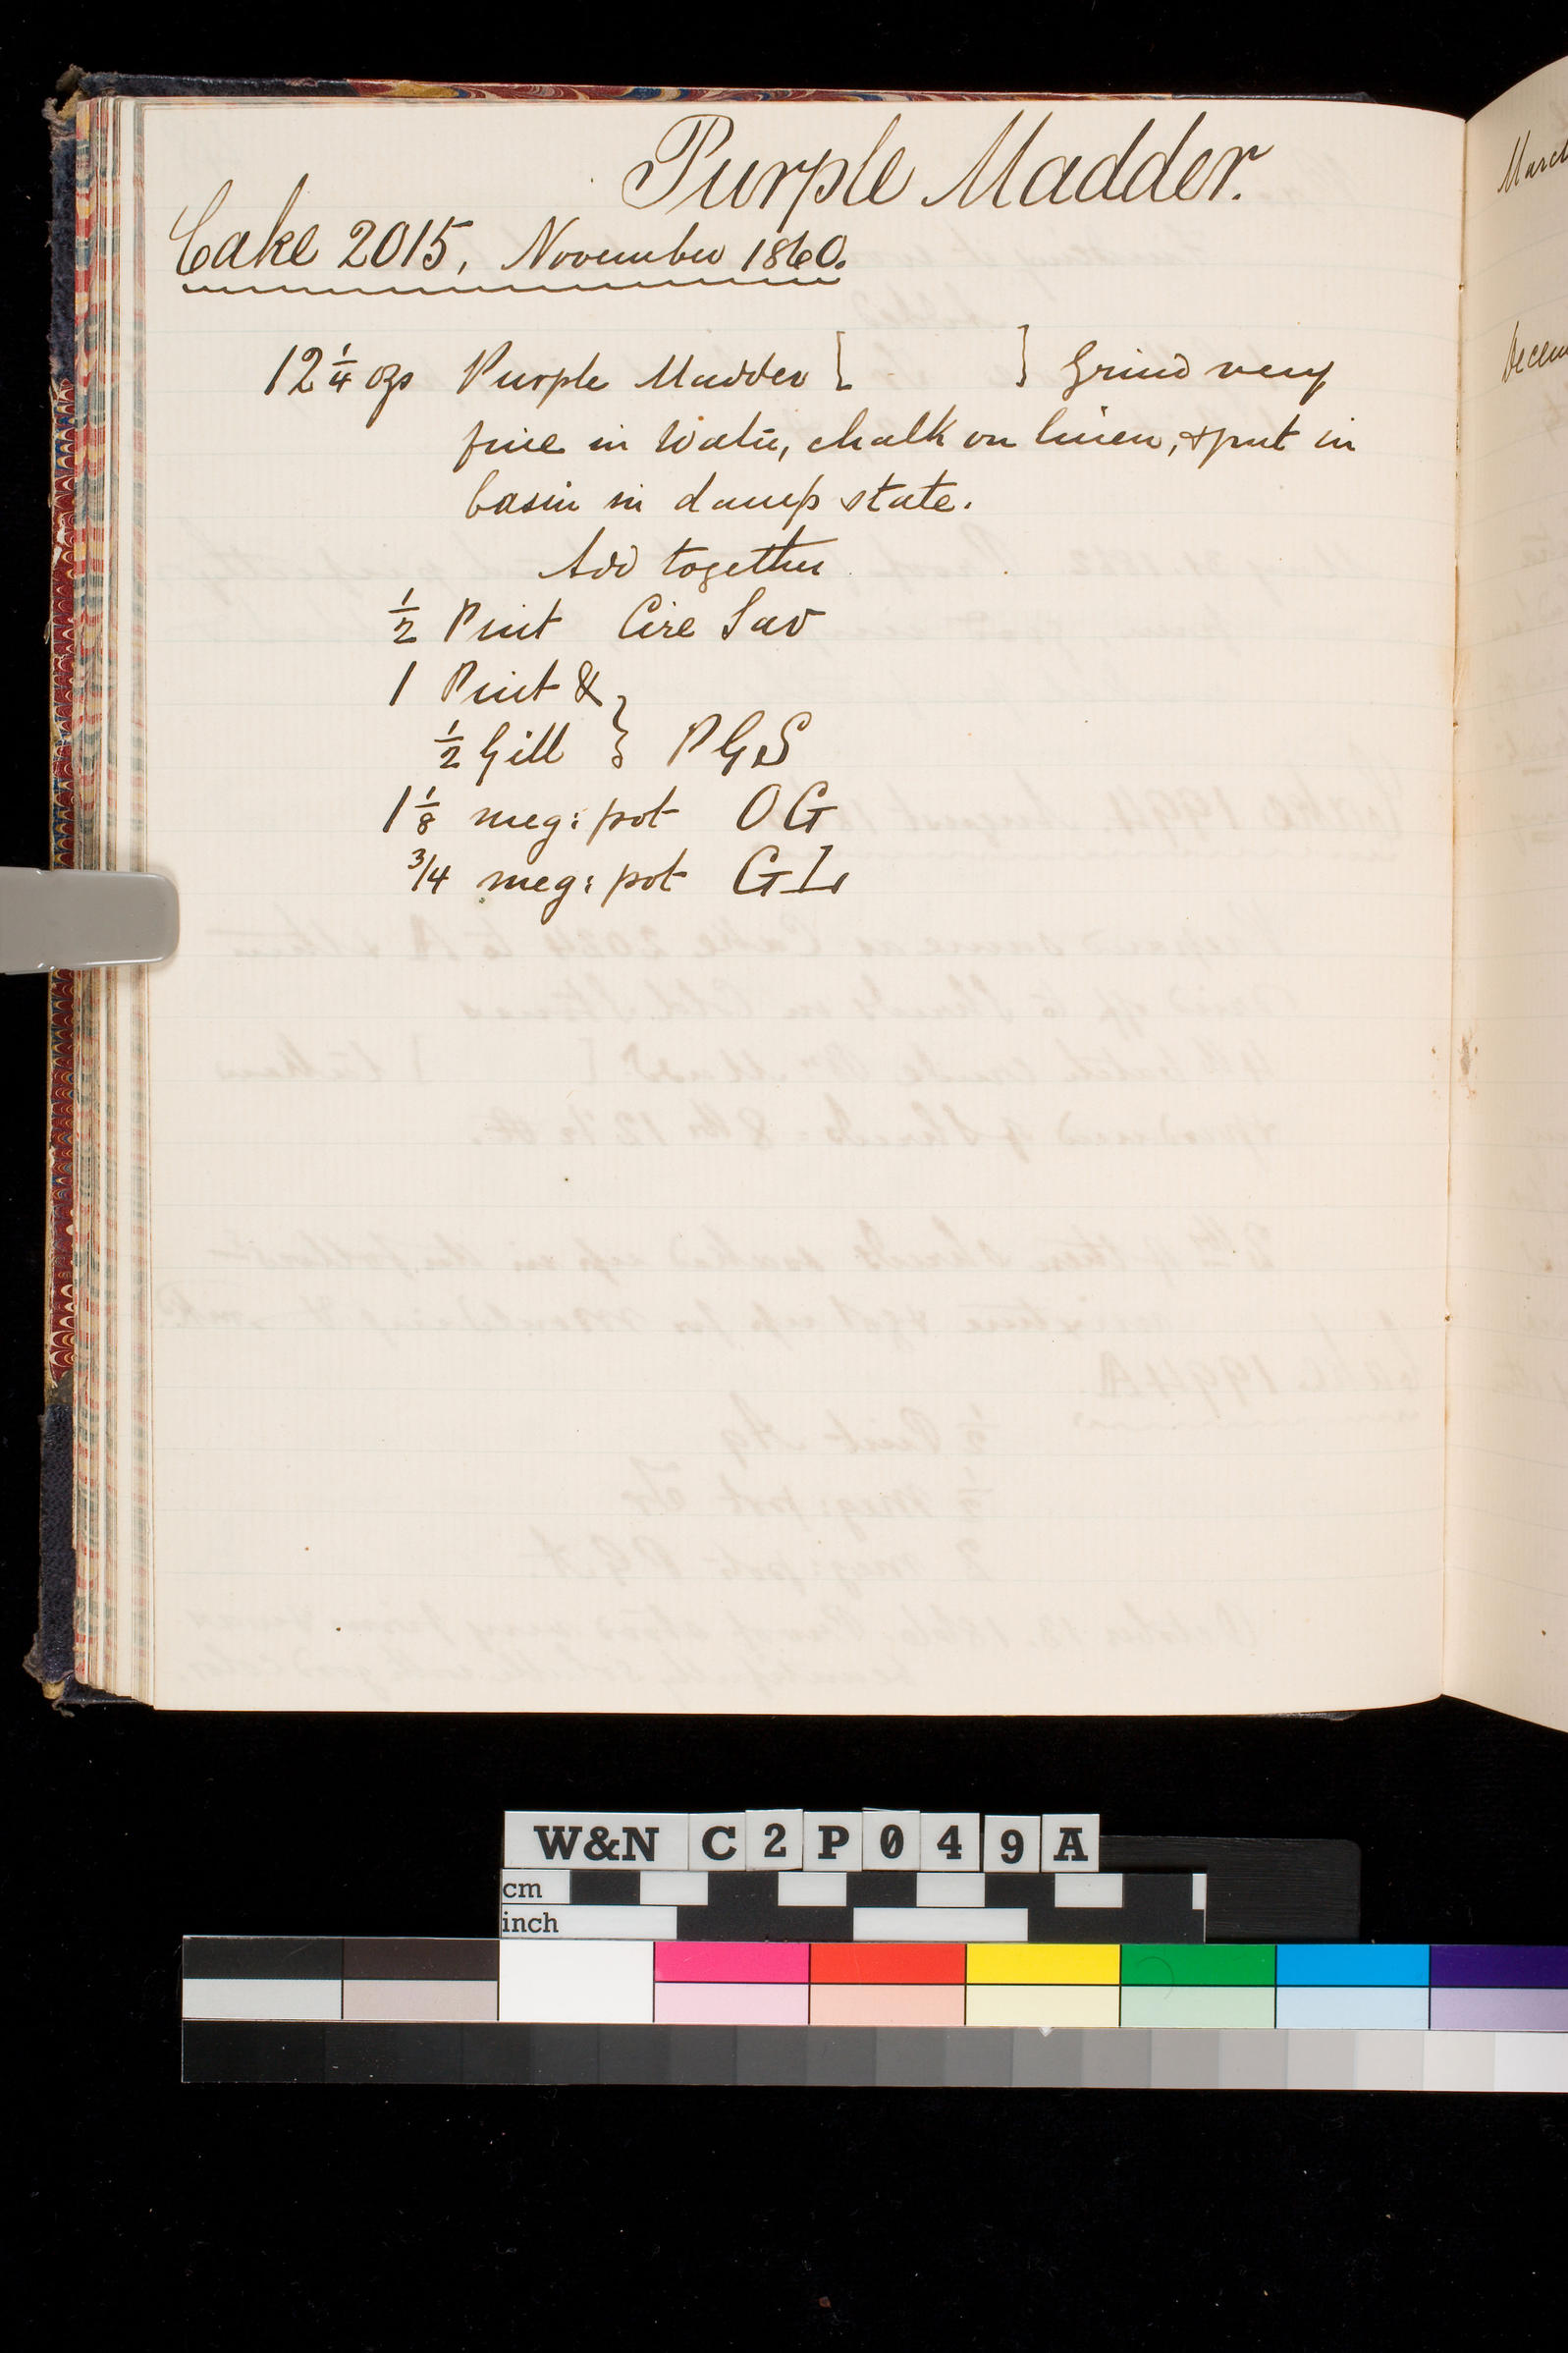 Purple Madder.
Cake 2015, November 1860.
12 1/4 ozs Purple Madder [ ] Grind very
fine in Water, chalk on linen, & put in
basin in damp state.
Add together
1/2 Pint Cire Sav
1 Pint &
1/2 Gill } PGS
1 1/8 meg: pot OG
3/4 meg: pot GL
March
Decem
W&N C2P049A
cm
inch